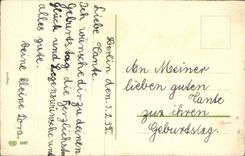 Berlin den 3.2.35.
Liebe Tante.
Ich wünsche dir zu deinen
Geburtstag die herzlichsten
Glück und Segenswünsche und
alles gute.
Deine kleine
An Meiner
lieben guten
Tante
zum ihren
Geburtstag.